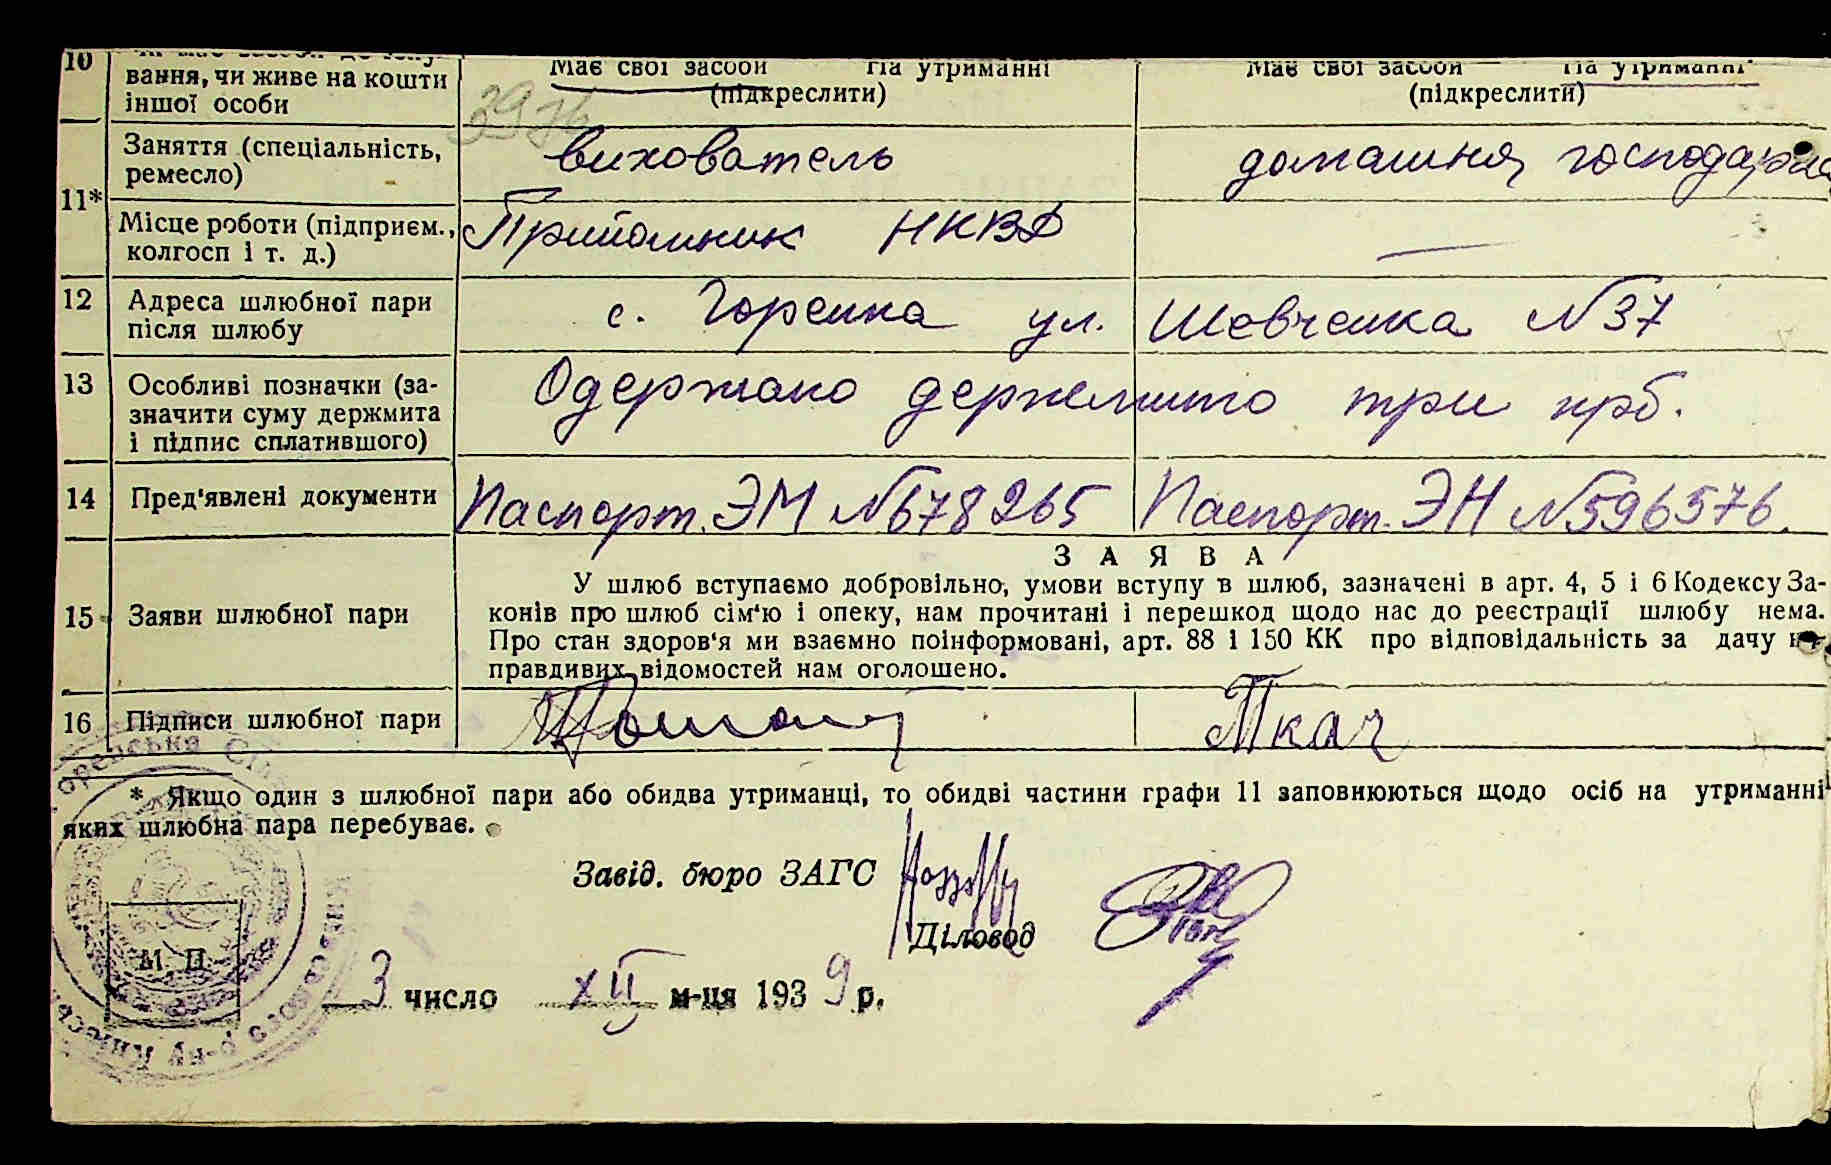 10
вання, чи живе на кошти
іншої особи
Має свої засоби На утриманні
(підкреслити)
Має свої засоби На утриманні
(підкреслити)
11*
Заняття (спеціальність,
ремесло)
вихователь
домашня господарка
Місце роботи (підприєм.,
колгосп і т. д.)
Прийомник НКВД
—
12
Адреса шлюбної пари
після шлюбу
с. Горенка ул. Шевченка №37
13
Особливі позначки (за-
значити суму держмита
і підпис сплатившого)
Одержано держмито три крб.
14
Пред'явлені документи
Паспорт. ЭМ №678265
Паспорт. ЭН №596576.
15
Заяви шлюбної пари
ЗАЯВА
У шлюб вступаємо добровільно, умови вступу в шлюб, зазначені в арт. 4, 5 і 6 Кодексу За-
конів про шлюб сім'ю і опеку, нам прочитані і перешкод щодо нас до реєстрації шлюбу нема.
Про стан здоров'я ми взаємно поінформовані, арт. 88 і 150 КК про відповідальність за дачу не-
правдивих відомостей нам оголошено.
16
Підписи шлюбної пари
Ткач
* Якщо один з шлюбної пари або обидва утриманці, то обидві частини графи 11 заповнюються щодо осіб на утриманні
яких шлюбна пара перебуває.
Завід. бюро ЗАГС
Діловод
М. П.
3 число XII м-ця 1939 р.